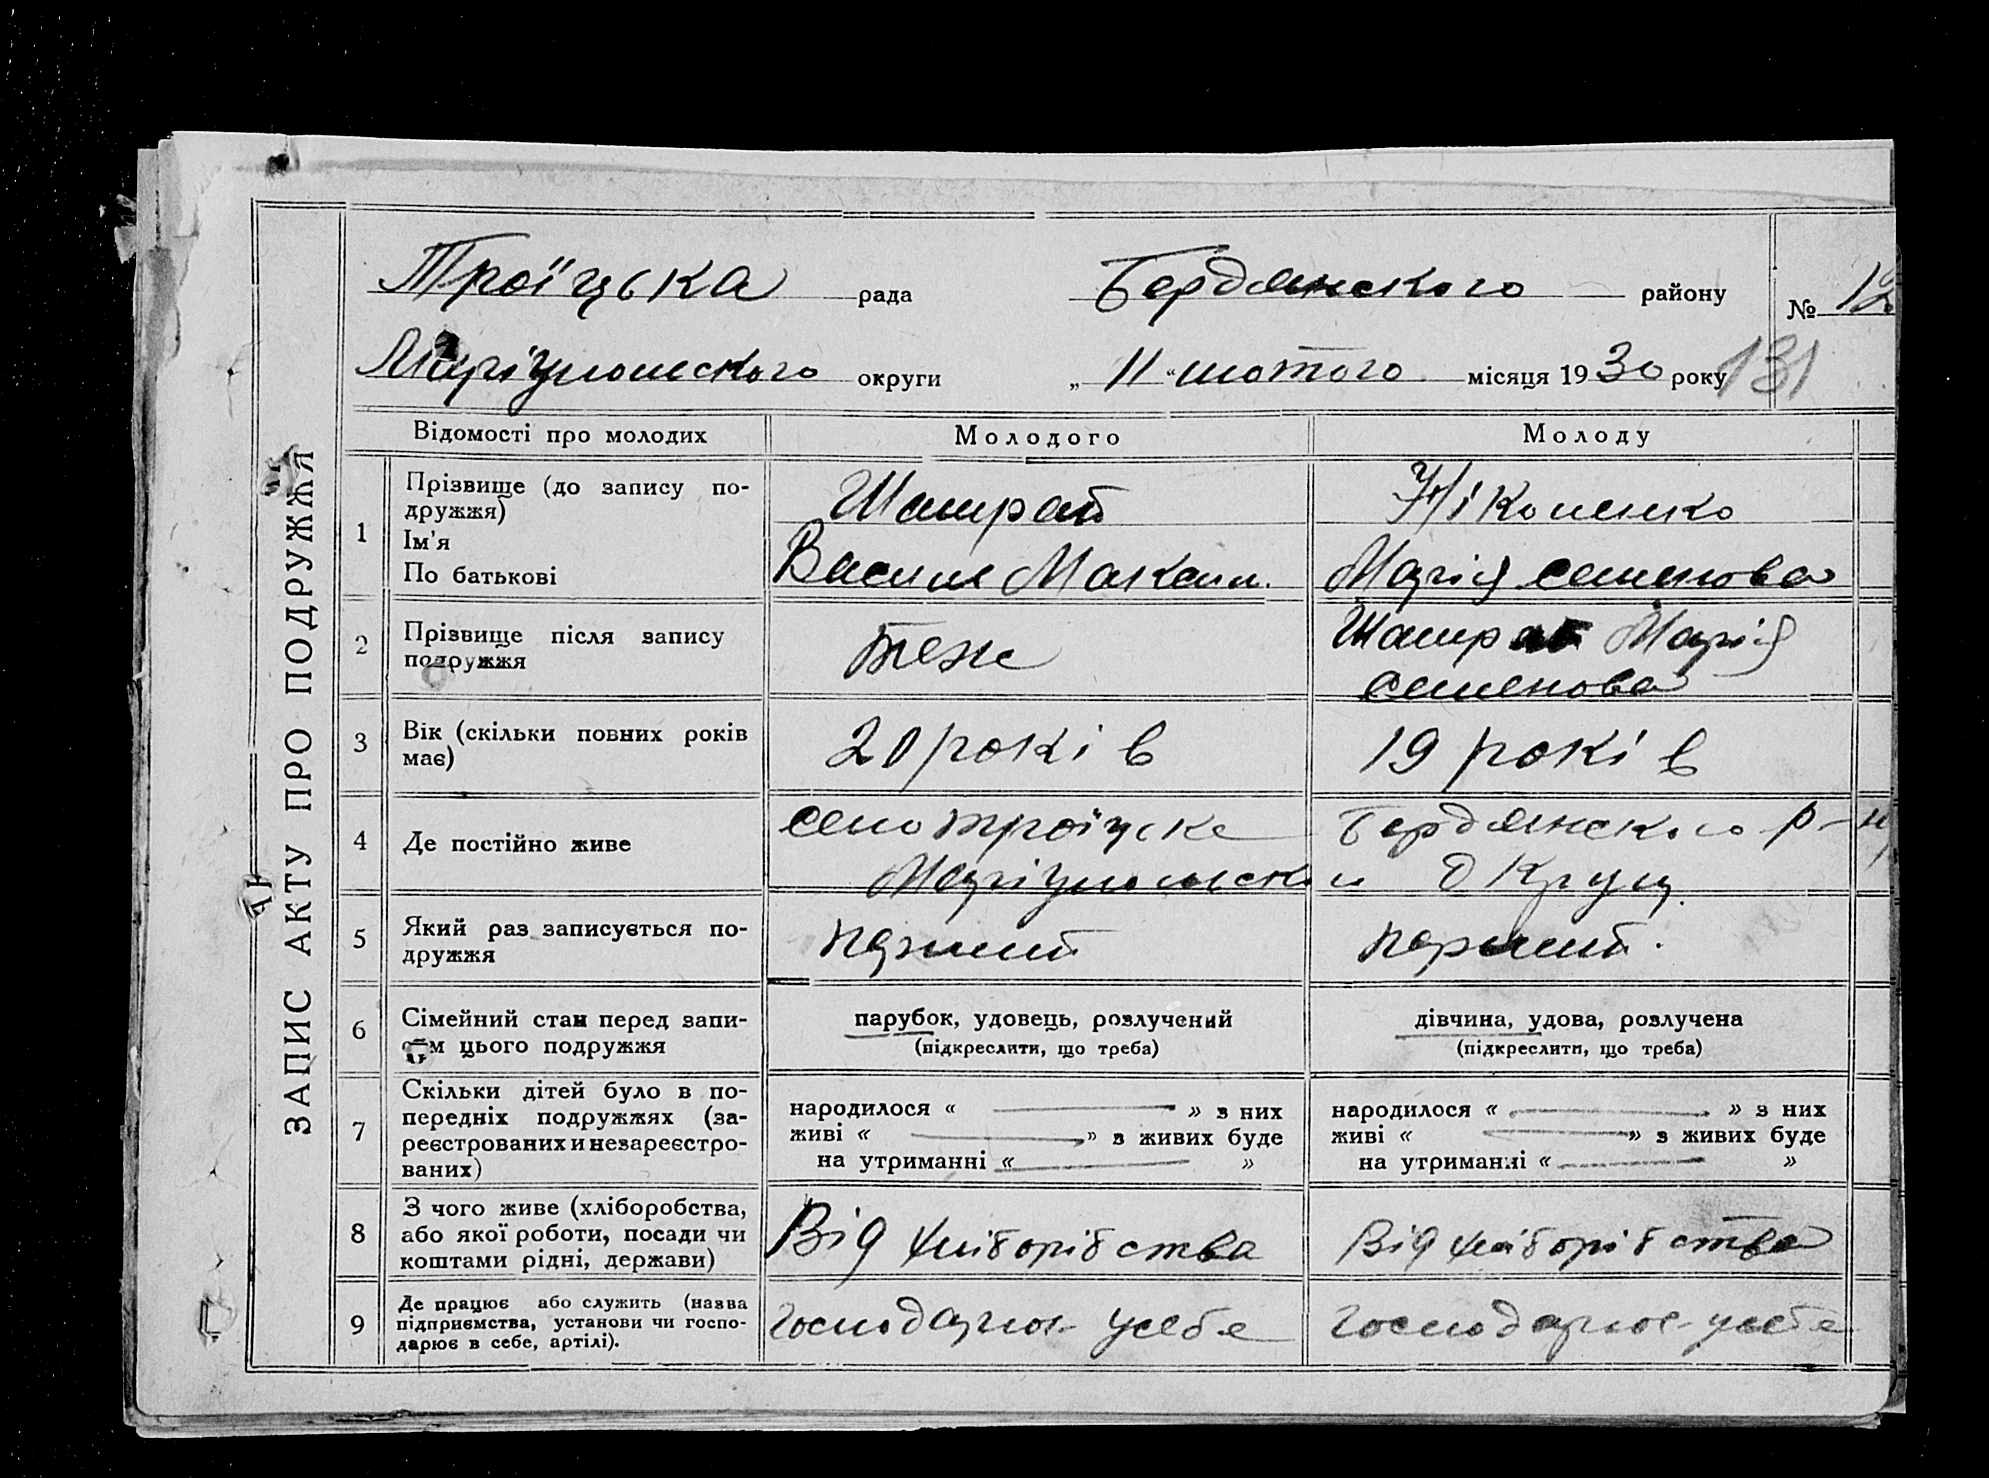 ЗАПИС АКТУ ПРО ПОДРУЖЖЯ
Троїцька рада Бердянского району № 12
Маріупольского округи „ 11 “ лютого місяця 1930 року 131
Відомості про молодих Молодого Молоду
1 Прізвище (до запису по-
дружжя)
Ім'я
По батькові
Шамрай
Василь Максим.
Ніконенко
Марія Семенова
2 Прізвище після запису
подружжя
теж
Шамрай Марія
Семенова
3 Вік (скільки повних років
має)
20 років
19 років
4 Де постійно живе
село троїцьке Бердянского р-н
Маріупольскои Округ.
5 Який раз записується по-
дружжя
перший
перший.
6 Сімейний стан перед запи-
сом цього подружжя
парубок, удовець, розлучений
(підкреслити, що треба)
дівчина, удова, розлучена
(підкреслити, що треба)
7 Скільки дітей було в по-
передніх подружжях (за-
реєстрованих и незареєстро-
ваних)
народилося « — » з них
живі « — » з живих буде
на утриманні « — »
народилося « — » з них
живі « — » з живих буде
на утриманні « — »
8 З чого живе (хліборобства,
або якої роботи, посади чи
коштами рідні, держави)
Від хліборібства
Від хліборібства
9 Де працює або служить (назва
підприємства, установи чи госпо-
дарює в себе, артілі).
господарює усебе
господарює усебе